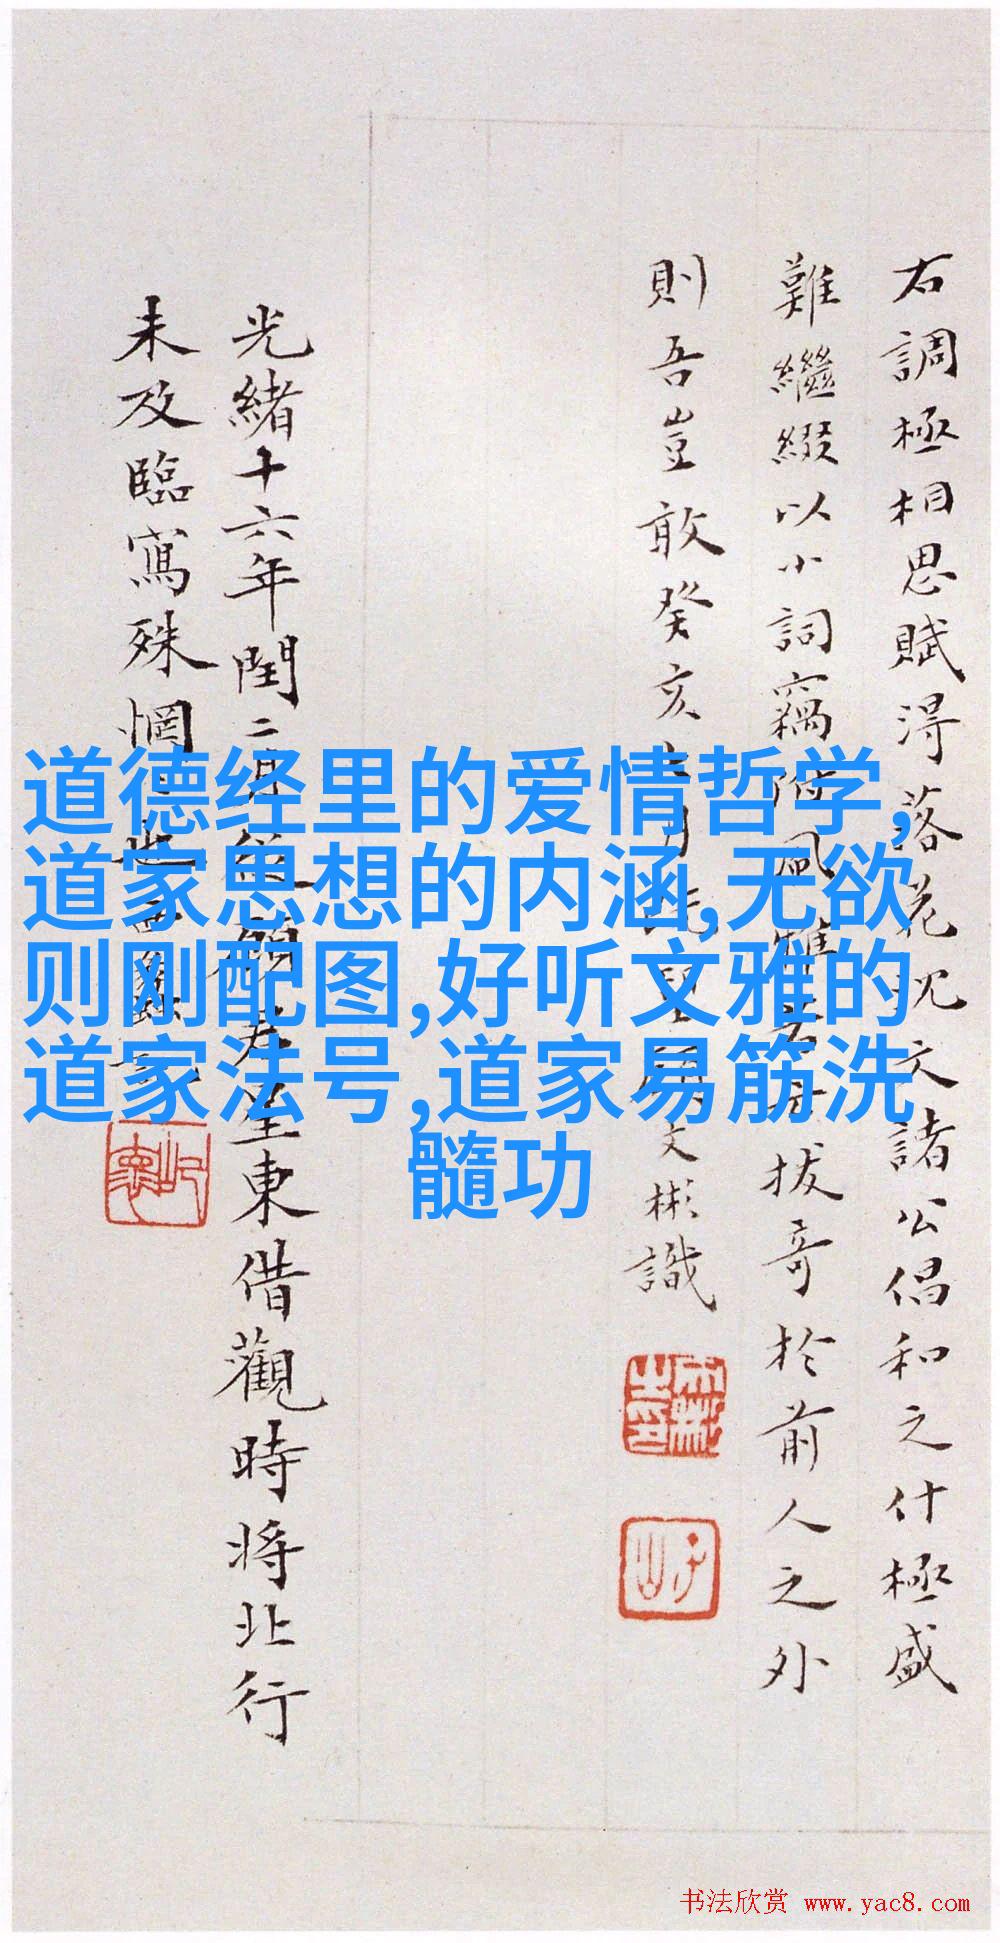 右調極相思賦得落花況文諸公倡和之什極盛
難繼綴以小詞竊附風雅
拔奇於前人之外
則吾豈敢癸亥
文彬識
光緒十六年閏二月從
東借觀時將北行
未及臨寫殊惘
道德经里的爱情哲学,
道家思想的内涵,无欲
则刚配图,好听文雅的
道家法号,道家易筋洗
髓功
书法欣赏 www.yac8.com